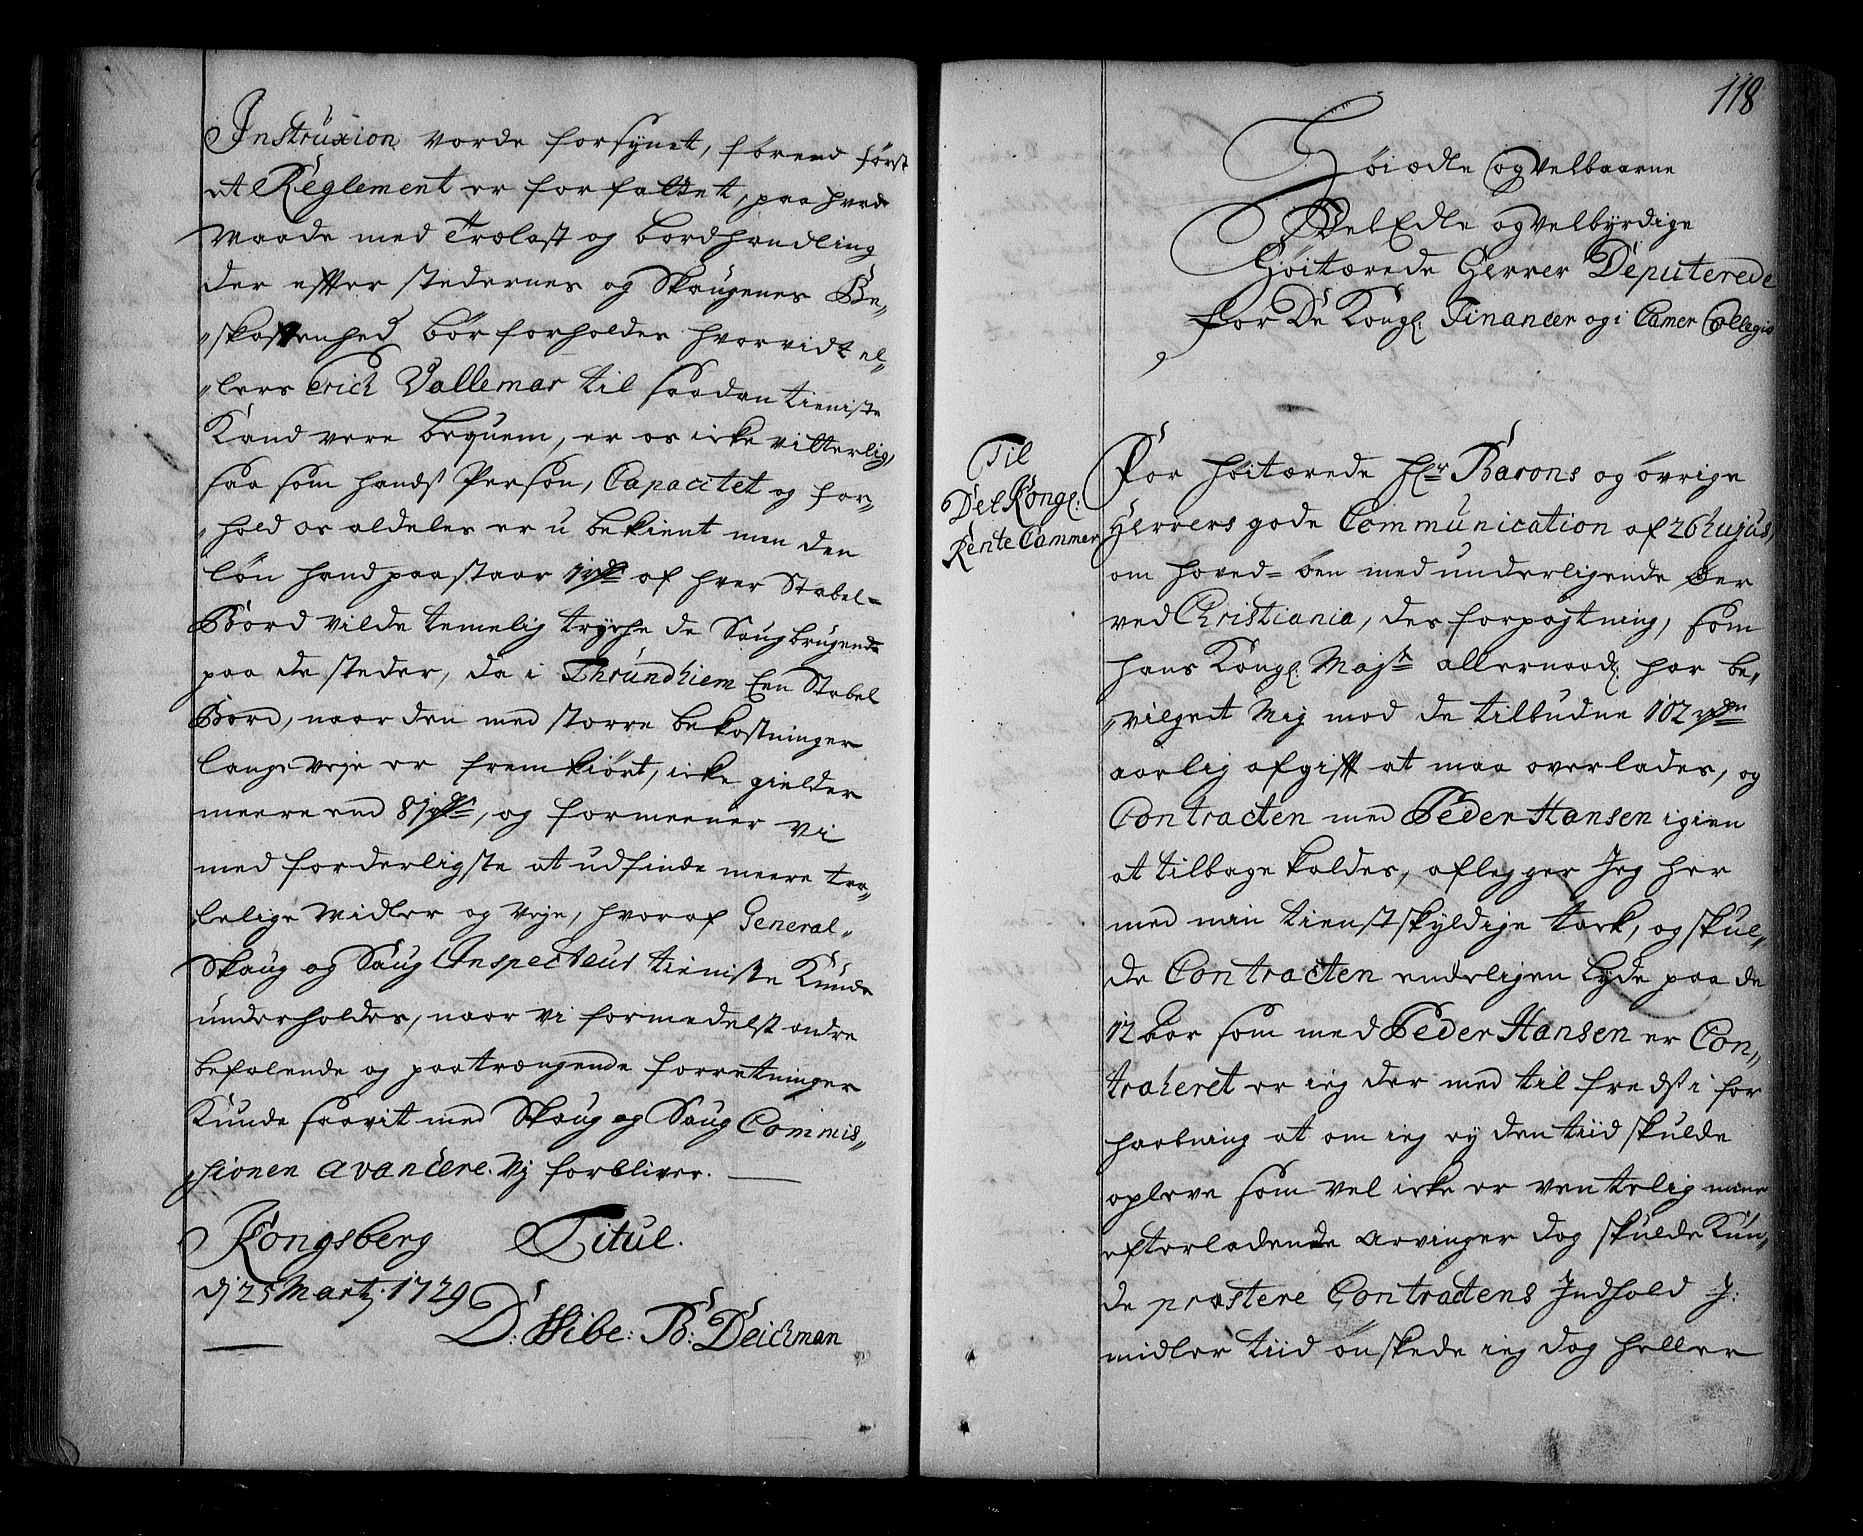 Instruxion vorde forsynet, førend først
et Reglement er forfattet, paa hvad
Maade med Trælast og bordhandling
der efter stedernes og Skougenes Be„
„skaffenhed bør forholdes hvorvidt el„
„lers Erich Vallemar til saadan tieniste
Kand vere bequem, er os icke vitterlig,
saa som hands Person, Capacitet og for„
„hold os aldeles er ubekient men den
løn hand paastaar 1 rdr af hver Stabel-
Bord vilde temelig trycke de Saugbrugende
paa de steder, da i Thrundhiem Een Stabel
Bord, naar den med storre bekostninger
lange veje er fremkiørt, icke gielder
meere end 8 rdr, og formeener vi
med forderligste at udfinde meere taa„
lelige Midler og Veje, hvoraf General„
Skoug og Saug Inspecteurs tieniste Kunde
underholdes, naar vi formedelst andre
befalende og paatrængende forretninger
Kunde saavit med Skoug og Saug Commis„
sionen avancere. Vj forbliver.
Kongsberg Titul.
dj 25 Martj 1729
D: Vibe: B: Deichman
118
Høiædle og velbaarne
VelEdle og velbyrdige
Høitærede Herrer Deputerede
for De Kongl. Financer og i Camer Collegio
Til
Det Kongl:
Rente Cammer
For høitærede Hr Barons og øvrige
Herrers gode Communication af 26 hujus,
om hoved-øen med underligende øer
ved Christiania, des forpagtning, som
hans Kongl. Majts allernaadl. har be„
„vilget Mig mod de tilbudne 102 rdr
aarlig afgift at maa overlades, og
Contracten med Peder Hansen igien
at tilbage kaldes, aflegger Jeg her
med min tienstskyldige tack, og skul„
de Contracten endeligen lyde paa de
12 aar som med Peder Hansen er Con„
traheret er ieg der med til freds i for
haabning at om ieg ey den tiid skulde
opleve som vel icke er ventelig mine
efterladende arvinger dog skulde Kun„
de præstere Contractens Indhold J:
midler tiid ønskede ieg dog heller